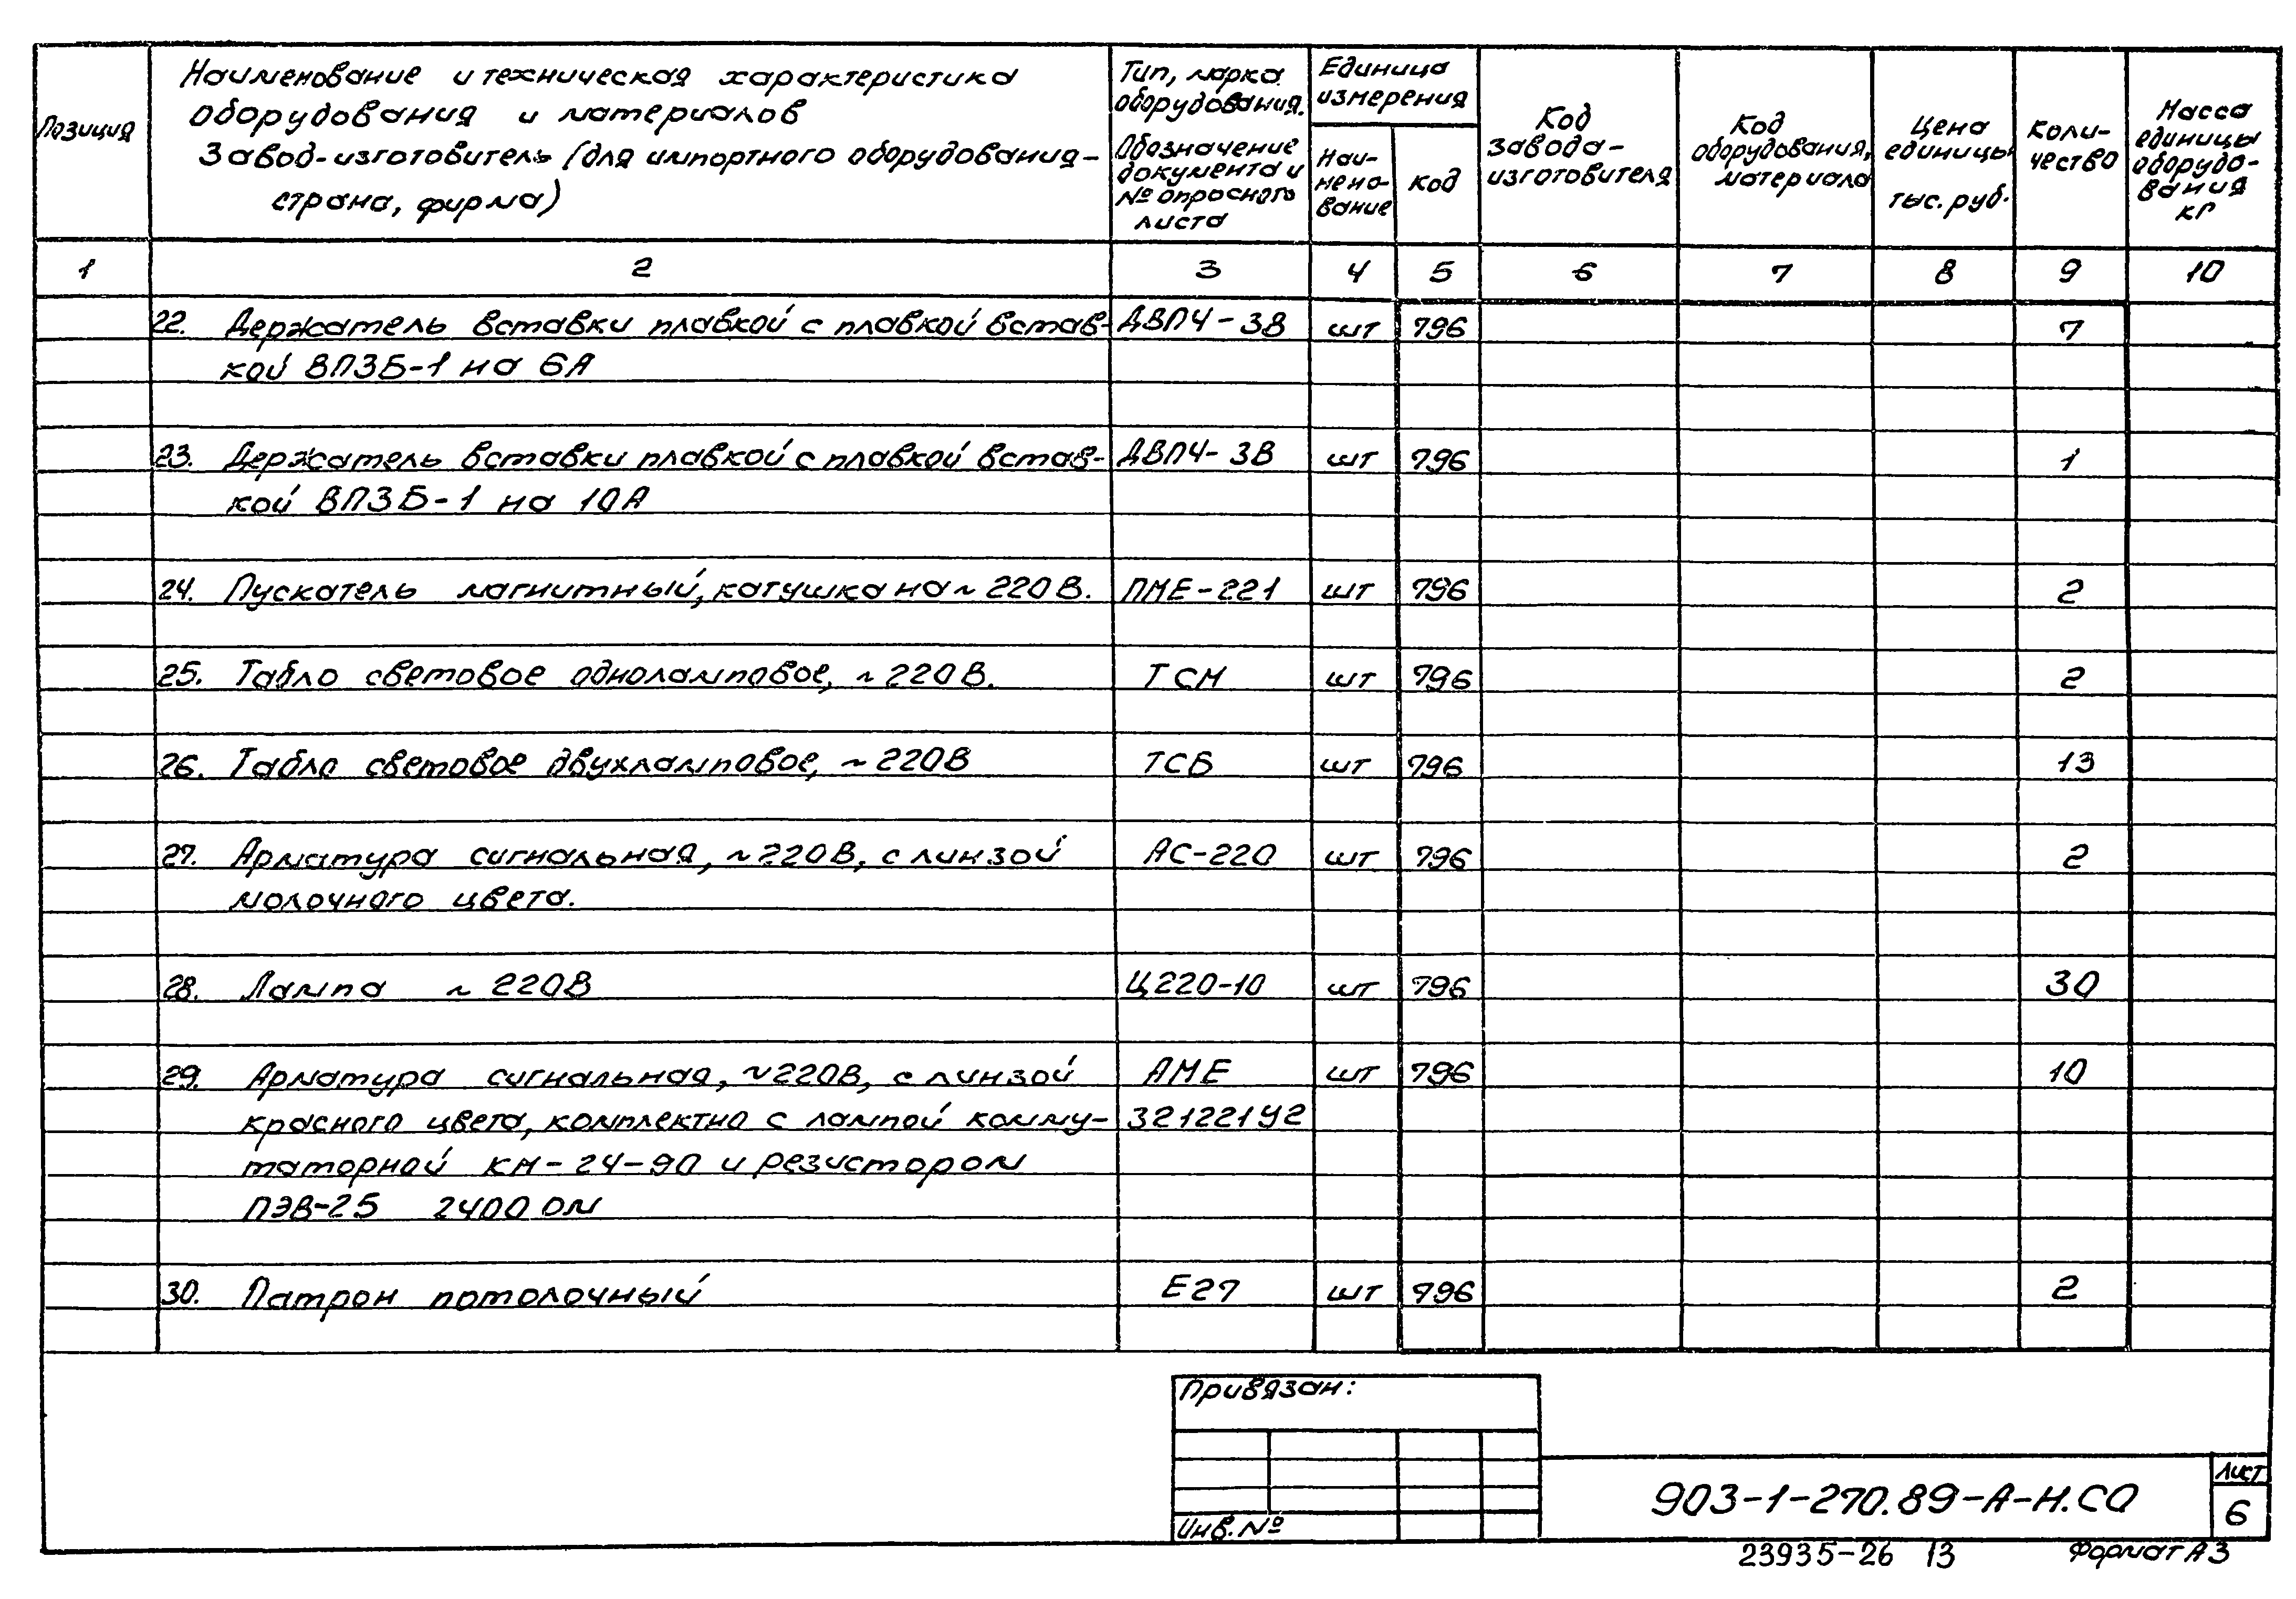 Позиция
Наименование и техническая характеристика
оборудования и материалов
Завод-изготовитель (для импортного оборудования-
страна, фирма)
Тип, марка
оборудования.
Обозначение
документа и
№ опросного
листа
Единица
измерения
Наи-
мено-
вание
Код
Код
завода-
изготовителя
Код
оборудования,
материала
Цена
единицы
тыс. руб.
Коли-
чество
Масса
единицы
оборудо-
вания
кг
1 2 3 4 5 6 7 8 9 10
22. Держатель вставки плавкой с плавкой встав- ДВП4-3В шт 796 7
кой ВП3Б-1 на 6А
23. Держатель вставки плавкой с плавкой встав- ДВП4-3В шт 796 1
кой ВП3Б-1 на 10А
24. Пускатель магнитный, катушка на ~ 220В. ПМЕ-221 шт 796 2
25. Табло световое одноламповое, ~ 220В. ТСМ шт 796 2
26. Табло световое двухламповое, ~ 220В ТСБ шт 796 13
27. Арматура сигнальная, ~220В, с линзой АС-220 шт 796 2
молочного цвета.
28. Лампа ~ 220В Ц220-10 шт 796 30
29. Арматура сигнальная, ~220В, с линзой АМЕ шт 796 10
красного цвета, комплектно с лампой комму- 321221У2
таторной КМ-24-90 и резистором
ПЭВ-25 2400 Ом
30. Патрон потолочный Е27 шт 796 2
Привязан:
Инв. №
903-1-270.89-А-Н.СО
Лист
6
23935-26 13 Формат А3